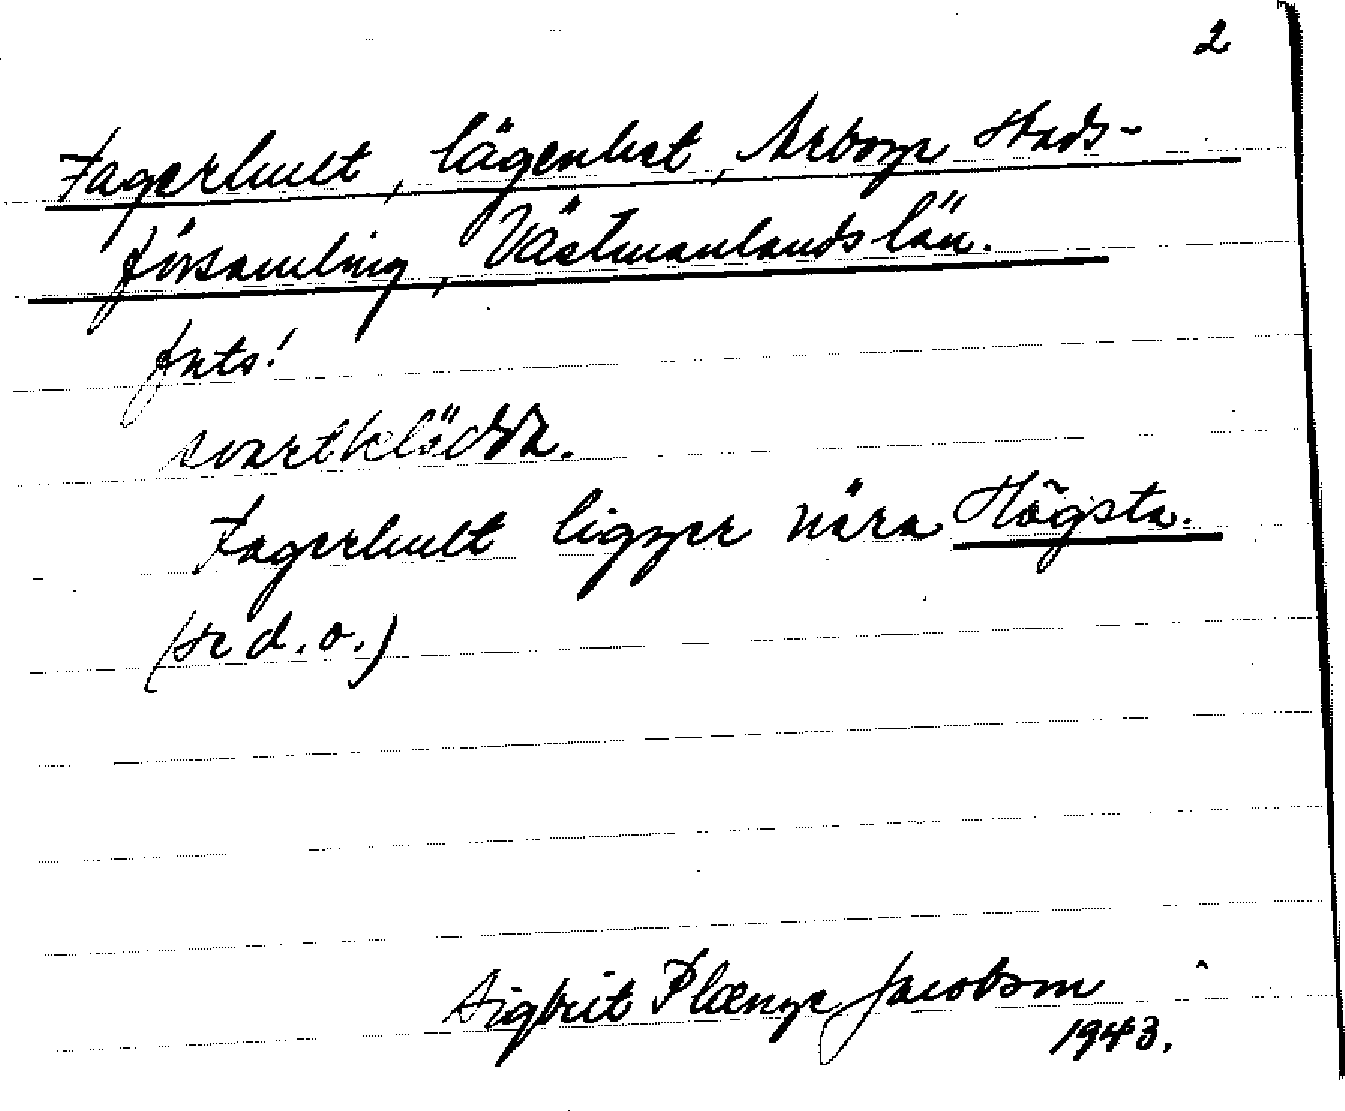 2
Fagerhult, lägenhet, Arboga stads-
församling, Västmanlands län.
fnts!
svartklädda.
Fagerhult ligger nära Högsta.
(se d.o.)
Sigbrit Plænge Jacobson
1943.